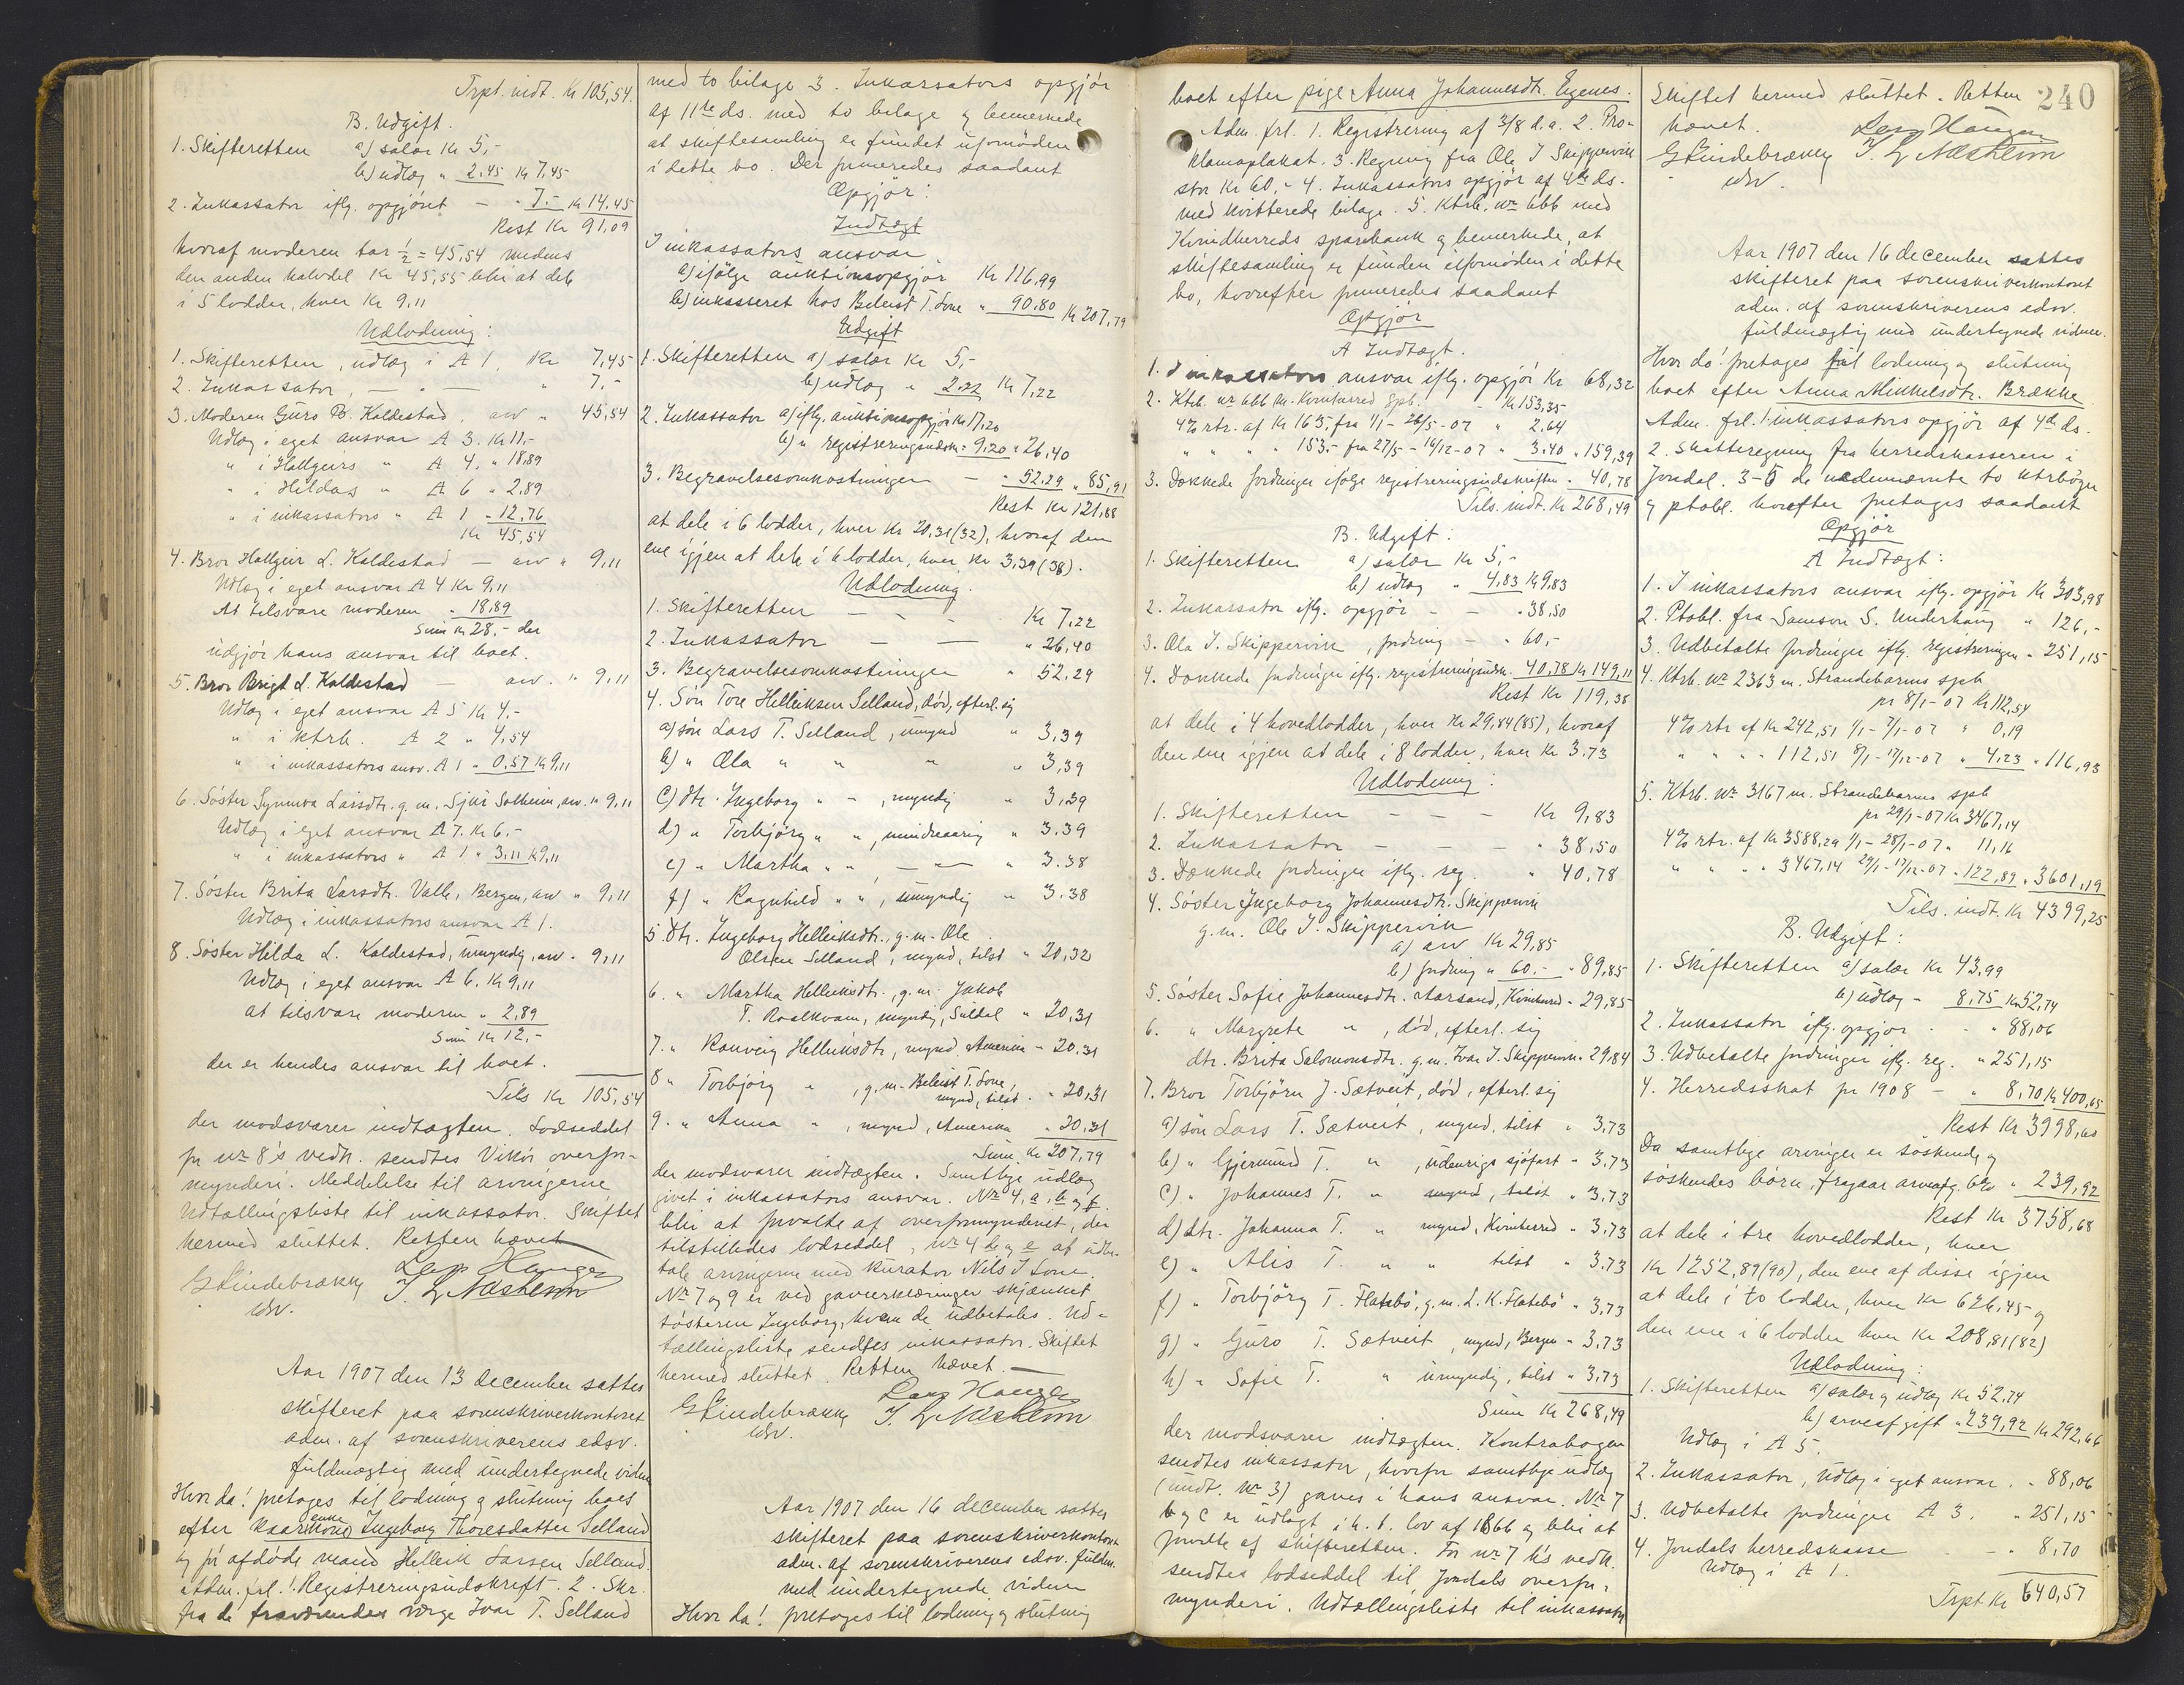 Trpt. indt. Kr 105,54.
B. Udgift.
1. Skifteretten a) salær Kr 5,-
b) udlæg " 2,45 Kr 7,45
2. Inkassator iflg. opgjöret — " 7.- Kr 14,45
Rest Kr 91,09
hvoraf moderen tar ½ = 45,54 medens
den anden halvdel Kr 45,55 blir at dele
i 5 lodder, hver Kr 9,11
Udlodning:
1. Skifteretten, udlæg i A 1. Kr 7,45
2. Inkassator, — " — " 7,-
3. Moderen Guro B. Kaldestad, arv " 45,54
Udlæg i eget ansvar A 3. Kr 11,-
" i Hallgeirs " A 4. " 18,89
" i Hildas " A 6 " 2,89
" i inkassators " A 1 " 12,76
Kr 45,54
4. Bror Hallgeir L. Kaldestad — arv " 9,11
Udlæg i eget ansvar A 4 Kr 9,11
At tilsvare moderen " 18,89
Sum Kr 28,- der
udgjör hans ansvar til boet.
5. Bror Brigt L. Kaldestad — arv. " 9,11
Udlæg i eget ansvar A 5 Kr 4,-
" i ktrb. A 2 " 4,54
" i inkassators ansv. A 1 " 0,57 Kr 9,11
6. Söster Synnva Larsdtr. g.m. Sjur Solheim, arv. " 9,11
Udlæg i eget ansvar A 7. Kr 6,-
" i inkassators " A 1 " 3,11 Kr 9,11
7. Söster Brita Larsdtr. Valle, Bergen, arv " 9,11
Udlæg i inkassators ansvar A 1.
8. Söster Hilda L. Kaldestad, umyndig, arv " 9,11
Udlæg i eget ansvar A 6. Kr 9,11
at tilsvare moderen " 2,89
Sum Kr 12,-
der er hendes ansvar til boet.
Tils Kr 105,54
der modsvarer indtægten. Lodseddel
for nr 8's vedk. sendtes Vikör overfor-
mynderi. Meddelelse til arvingerne
Udtællingsliste til inkassator. Skiftet
hermed sluttet. Retten hævet
Lars Haugen
G Lindebrække J. L. Næsheim
edsv.
Aar 1907 den 13 december sattes
skifteret paa sorenskriverkontoret
adm. af sorenskriverens edsv.
fuldmægtig med undertegnede vidner
Hvor da! foretoges til lodning og slutning boet
efter enke Ingeborg Thoresdatter Selland
og för afdöde mand Helleik Larsen Selland.
Adm. frl. 1. Registreringsudskrift. 2. Skr.
fra de fraværendes værge Ivar T. Selland
med to bilage 3. Inkassators opgjör
af 11te ds. med to bilage og bemerkede
at skiftesamling er fundet ufornöden
i dette bo. Der foretoges saadant
Opgjör:
Indtægt
I inkassators ansvar
a) ifölge auktionsopgjör Kr 116,99
b) inkasseret hos Beleist T. Lone " 90,80 Kr 207,79
Udgift
1. Skifteretten a) salær Kr 5,-
b) udlæg " 2,22 Kr 7,22
2. Inkassator a) iflg. auktionsopgjör Kr 17,20
b) " registreringsudsk. " 9,20 " 26,40
3. Begravelsesomkostninger — " 52,29 " 85,91
Rest Kr 121,88
at dele i 6 lodder, hver Kr 20,31(32), hvoraf den
ene igjen at dele i 6 lodder, hver Kr 3,39(38).
Udlodning.
1. Skifteretten — — — Kr 7,22
2. Inkassator — — " 26,40
3. Begravelsesomkostninger " 52,29
4. Sön Tore Helleiksen Selland, död, efterl. sig
a) sön Lars T. Selland, umynd " 3,39
b) " Ola " " " " 3,39
c) dtr. Ingeborg " ", myndig " 3,39
d) " Torbjörg " ", mindreaarig " 3.39
e) " Martha " ", — " — " 3.38
f) " Ragnhild " ", umyndig " 3.38
5. Dtr. Ingeborg Helleiksdtr., g.m. Ole
Olsen Selland, mynd, tilst " 20,32
6. " Martha Helleiksdtr., g.m. Jakob
T. Roalkvam, myndig, Suldal " 20,31
7. " Ranveig Helleiksdtr, mynd, Amerika " 20,31
8 " Torbjörg " , g.m. Beleist T. Lone,
mynd, tilst. " 20,31
9. " Anna " , mynd, Amerika " 20,31
Sum Kr. 207,79
der modsvarer indtægten. Samtlige udlæg
givet i inkassators ansvar. Nr 4, a, b og f.
blir at forvalte af overformynderiet, der
tilstilledes lodseddel, nr 4 d og e at udbe-
tale arvingerne med kurator Nils J Lone.
Nr 7 og 9 er ved gaverklæringer skjænket
søsteren Ingeborg, hvem de udbetales. Ud-
tællingsliste sendtes inkassator. Skiftet
hermed sluttet. Retten hævet. —
Lars Haugen
G Lindebrække J. L. Næsheim
edsv.
Aar 1907 den 16 december sattes
skifteret paa sorenskriverkontoret
adm. af sorenskriverens edsv. fuldm.
med undertegnede vidner
Hvor da! foretoges til lodning og slutning
boet efter pige Anna Johannesdtr. Egenes.
Adm. frl. 1. Registrering af 3/8 d.a. 2. Pro-
klamaplakat. 3. Regning fra Ole J Skippervik
stor Kr 60,- 4. Inkassators opgjör af 4de ds.
med kvitterede bilage. 5. Ktrb. nr 666 med
Kvindherreds sparebank og bemerkede, at
skiftesamling er funden ufornöden i dette
bo, hvorefter foretoges saadant
Opgjör
A Indtægt.
1. I inkassators ansvar iflg. opgjör Kr 68,32
2. Ktrb. nr 666 m. Kvinherred Spb. Kr 153,35
4% rtr. af Kr 163,- fra 1/1 - 26/5-07 " 2,64
" " " " 153,- fra 27/5 - 16/12-07 " 3,40 " 159,39
3. Dækkede fordringer ifölge registreringsudskriften " 40,78
Tils. indt. Kr 268,49
B. Udgift:
1. Skifteretten a) salær Kr 5,-
b) udlæg " 4,83 Kr 9,83
2. Inkassator iflg. opgjör — — " 38,50
3. Ola J. Skippervik, fordring — " 60,-
4. Dækkede fordringer iflg. registreringsudsk. 40,78 Kr 149,11
Rest Kr 119,38
at dele i 4 hovedlodder, hver Kr 29,84(85), hvoraf
den ene igjen at dele i 8 lodder, hver Kr 3.73
Udlodning:
1. Skifteretten — — — Kr 9,83
2. Inkassator — — — " 38,50
3. Dækkede fordringer iflg. reg. " 40,78
4. Söster Ingeborg Johannesdtr. Skippervik
g.m. Ole J. Skippervik
a) arv Kr 29,85
b) fordring " 60,- " 89,85
5. Söster Sofie Johannesdtr. Aarsand, Kvinherred " 29,85
6. " Margrete " , död, efterl. sig
dtr. Brita Salomonsdtr. g.m. Ivar J. Skippervik " 29,84
7. Bror Torbjörn J. Sætveit, död, efterl. sig
a) sön Lars T. Sætveit, mynd, tilst " 3,73
b) " Gjermund T. " , udenrigs sjöfart " 3,73
c) " Johannes T. " mynd, tilst " 3,73
d) dtr. Johanna T. " mynd, Kvinherred " 3,73
e) " Alis T. " " tilst " 3.73
f) " Torbjörg T. Flatebö, g.m. L. K. Flatebö " 3,73
g) " Guro T. Sætveit, mynd, Bergen " 3,73
h) " Sofie T. " umyndig, tilst " 3,73
Sum Kr 268,49
der modsvarer indtægten. Kontrabogen
sendtes inkassator, hvorfor samtlige udlæg
(undt. nr 3) gaves i hans ansvar. Nr 7
b og c er udlagt i h. t. lov af 1866 og blir at
forvalte af skifteretten. For nr 7 h's vedk.
sendtes lodseddel til Jondals overfor-
mynderi. Udtællingsliste til inkassator
Skiftet hermed sluttet. Retten
240
hævet.
Lars Haugen
G Lindebrække J. L. Næsheim
edsv.
Aar 1907 den 16 december sattes
skifteret paa sorenskriverkontoret
adm. af sorenskriverens edsv.
fuldmægtig med undertegnede vidner.
Hvor da! foretoges til lodning og slutning
boet efter Anna Mikkelsdtr. Brække
Adm. frl. 1. inkassators opgjör af 4de ds.
2. Skatteregning fra herredskasseren i
Jondal. 3-5 de nedennævnte to ktrböger
og ptobl. hvorefter foretoges saadant
Opgjör
A Indtægt:
1. I inkassators ansvar iflg. opgjör Kr 303,98
2. Ptobl. fra Samson S. Underhaug " 126,-
3. Udbetalte fordringer iflg. registreringen " 251,15
4. Ktrb. nr 2363 m. Strandebarms spb
pr 8/1-07 Kr 112,51
4% rtr af Kr 242,51 1/1 - 7/1-07 " 0,19
" " " " 112,51 8/1 - 17/12-07 " 4,23 " 116,93
5. Ktrb. nr 3167 m. Strandebarms spb
pr 29/1-07 Kr 3467,14
4% rtr. af Kr 3588,29 1/1 - 28/1-07 " 11,16
" " " " 3467,14 29/1 - 17/12-07 " 122,89 " 3601,19
Tils. indt. Kr 4399,25
B. Udgift:
1. Skifteretten a) salær Kr 43,99
b) udlæg " 8,75 Kr 52,74
2. Inkassator iflg. opgjör " 88,06
3. Udbetalte fordringer iflg. reg. " 251,15
4. Herredsskat for 1908 — " 8,70 Kr 400,65
Rest Kr 3998,60
Da samtlige arvinger er söskende og
söskendes börn, fragaar arveafg. 6% " 239,92
Rest Kr 3758,68
at dele i tre hovedlodder, hver
Kr 1252,89(90), den ene af disse igjen
at dele i to lodder, hver Kr 626,45 og
den ene i 6 lodder hver Kr 208,81(82)
Udlodning:
1. Skifteretten a) salær og udlæg Kr 52,74
b) arveafgift " 239,92 Kr 292,66
Udlæg i A 5.
2. Inkassator, udlæg i eget ansvar. " 88,06
3. Udbetalte fordringer A 3. " 251,15
4. Jondals herredskasse — " 8,70
Udlæg i A 1.
Trpt Kr 640,57